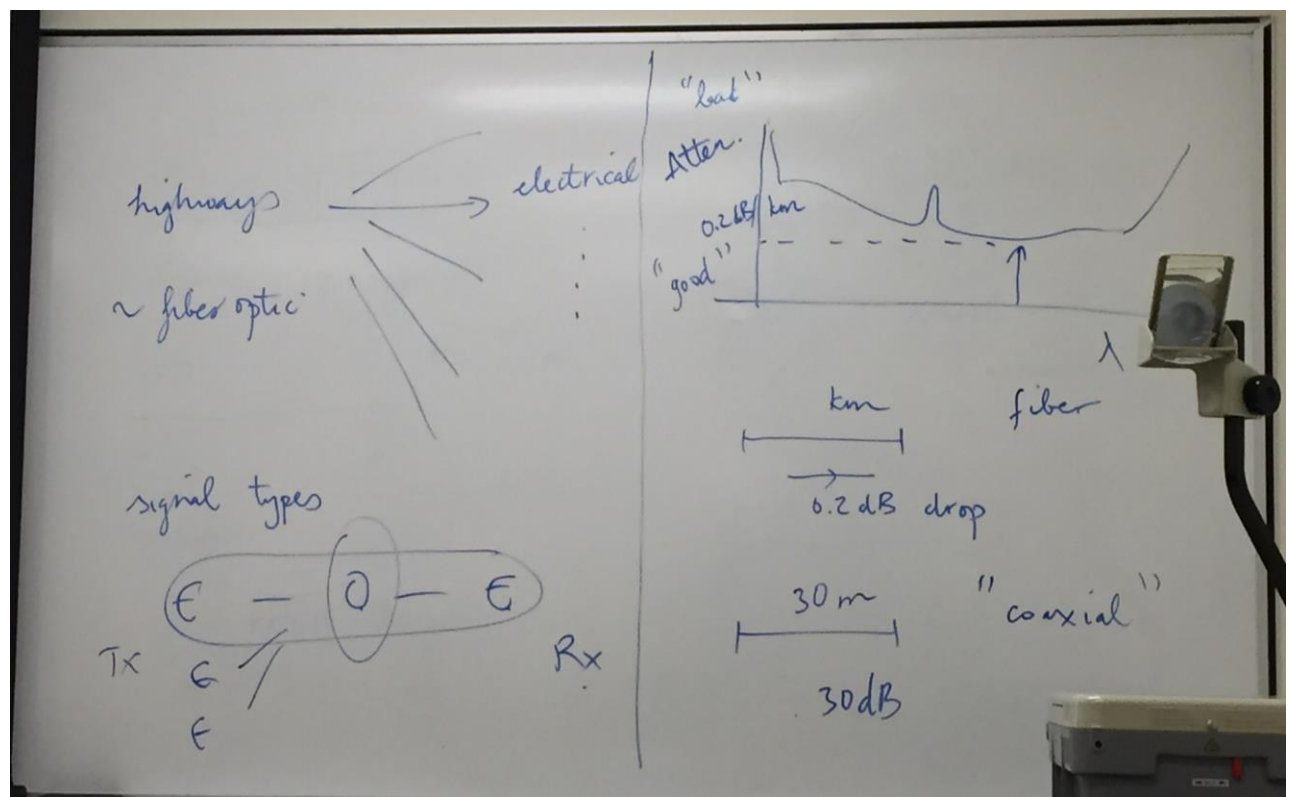 highways
electrical
~ fiber optic
signal types
E — O — E
Tx
Rx
E
E
"bad"
Atten.
0.2dB/km
"good"
λ
km
fiber
0.2 dB drop
30m
"coaxial"
30dB